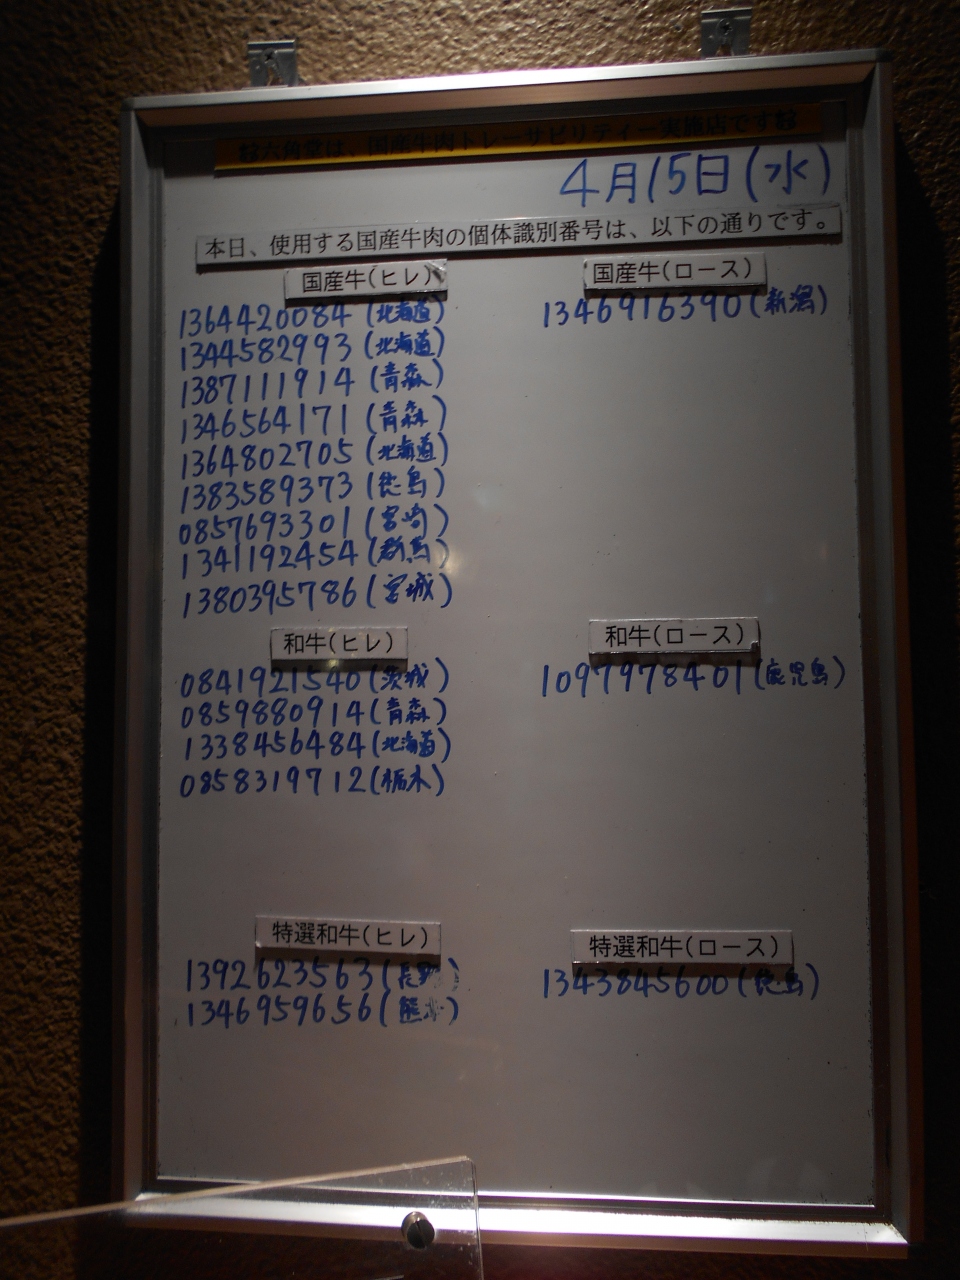 六角堂は、国産牛肉トレーサビリティー実施店です
4月15日(水)
本日、使用する国産牛肉の個体識別番号は、以下の通りです。
国産牛(ヒレ)
1364420084(北海道)
1344582993(北海道)
1387111914(青森)
1346564171(青森)
1364802705(北海道)
1383589373(徳島)
0857693301(宮崎)
1341192454(群馬)
1380395786(宮城)
国産牛(ロース)
1346916390(新潟)
和牛(ヒレ)
0841921540(茨城)
0859880914(青森)
1338456484(北海道)
0858319712(栃木)
和牛(ロース)
1097978401(鹿児島)
特選和牛(ヒレ)
1392623563(長野)
1346959656(熊本)
特選和牛(ロース)
1343845600(徳島)